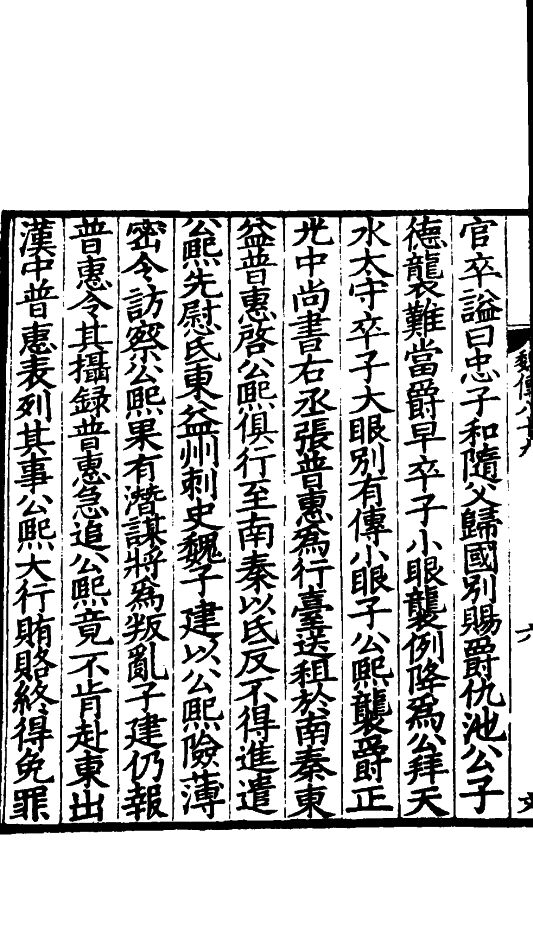 魏傳八十九
六
官卒謚曰忠子和隨父歸國別賜爵仇池公子
德襲難當爵早卒子小眼襲例降為公拜天
水太守卒子大眼別有傳小眼子公熙襲爵正
光中尚書右丞張普惠為行臺送租於南秦東
益普惠啓公熙俱行至南秦以氐反不得進遣
公熙先慰氐東益州刺史魏子建以公熙險薄
密令訪察公熙果有潛謀將為叛亂子建仍報
普惠令其攝録普惠急追公熙竟不肯赴東出
漢中普惠表列其事公熙大行賄賂終得免罪